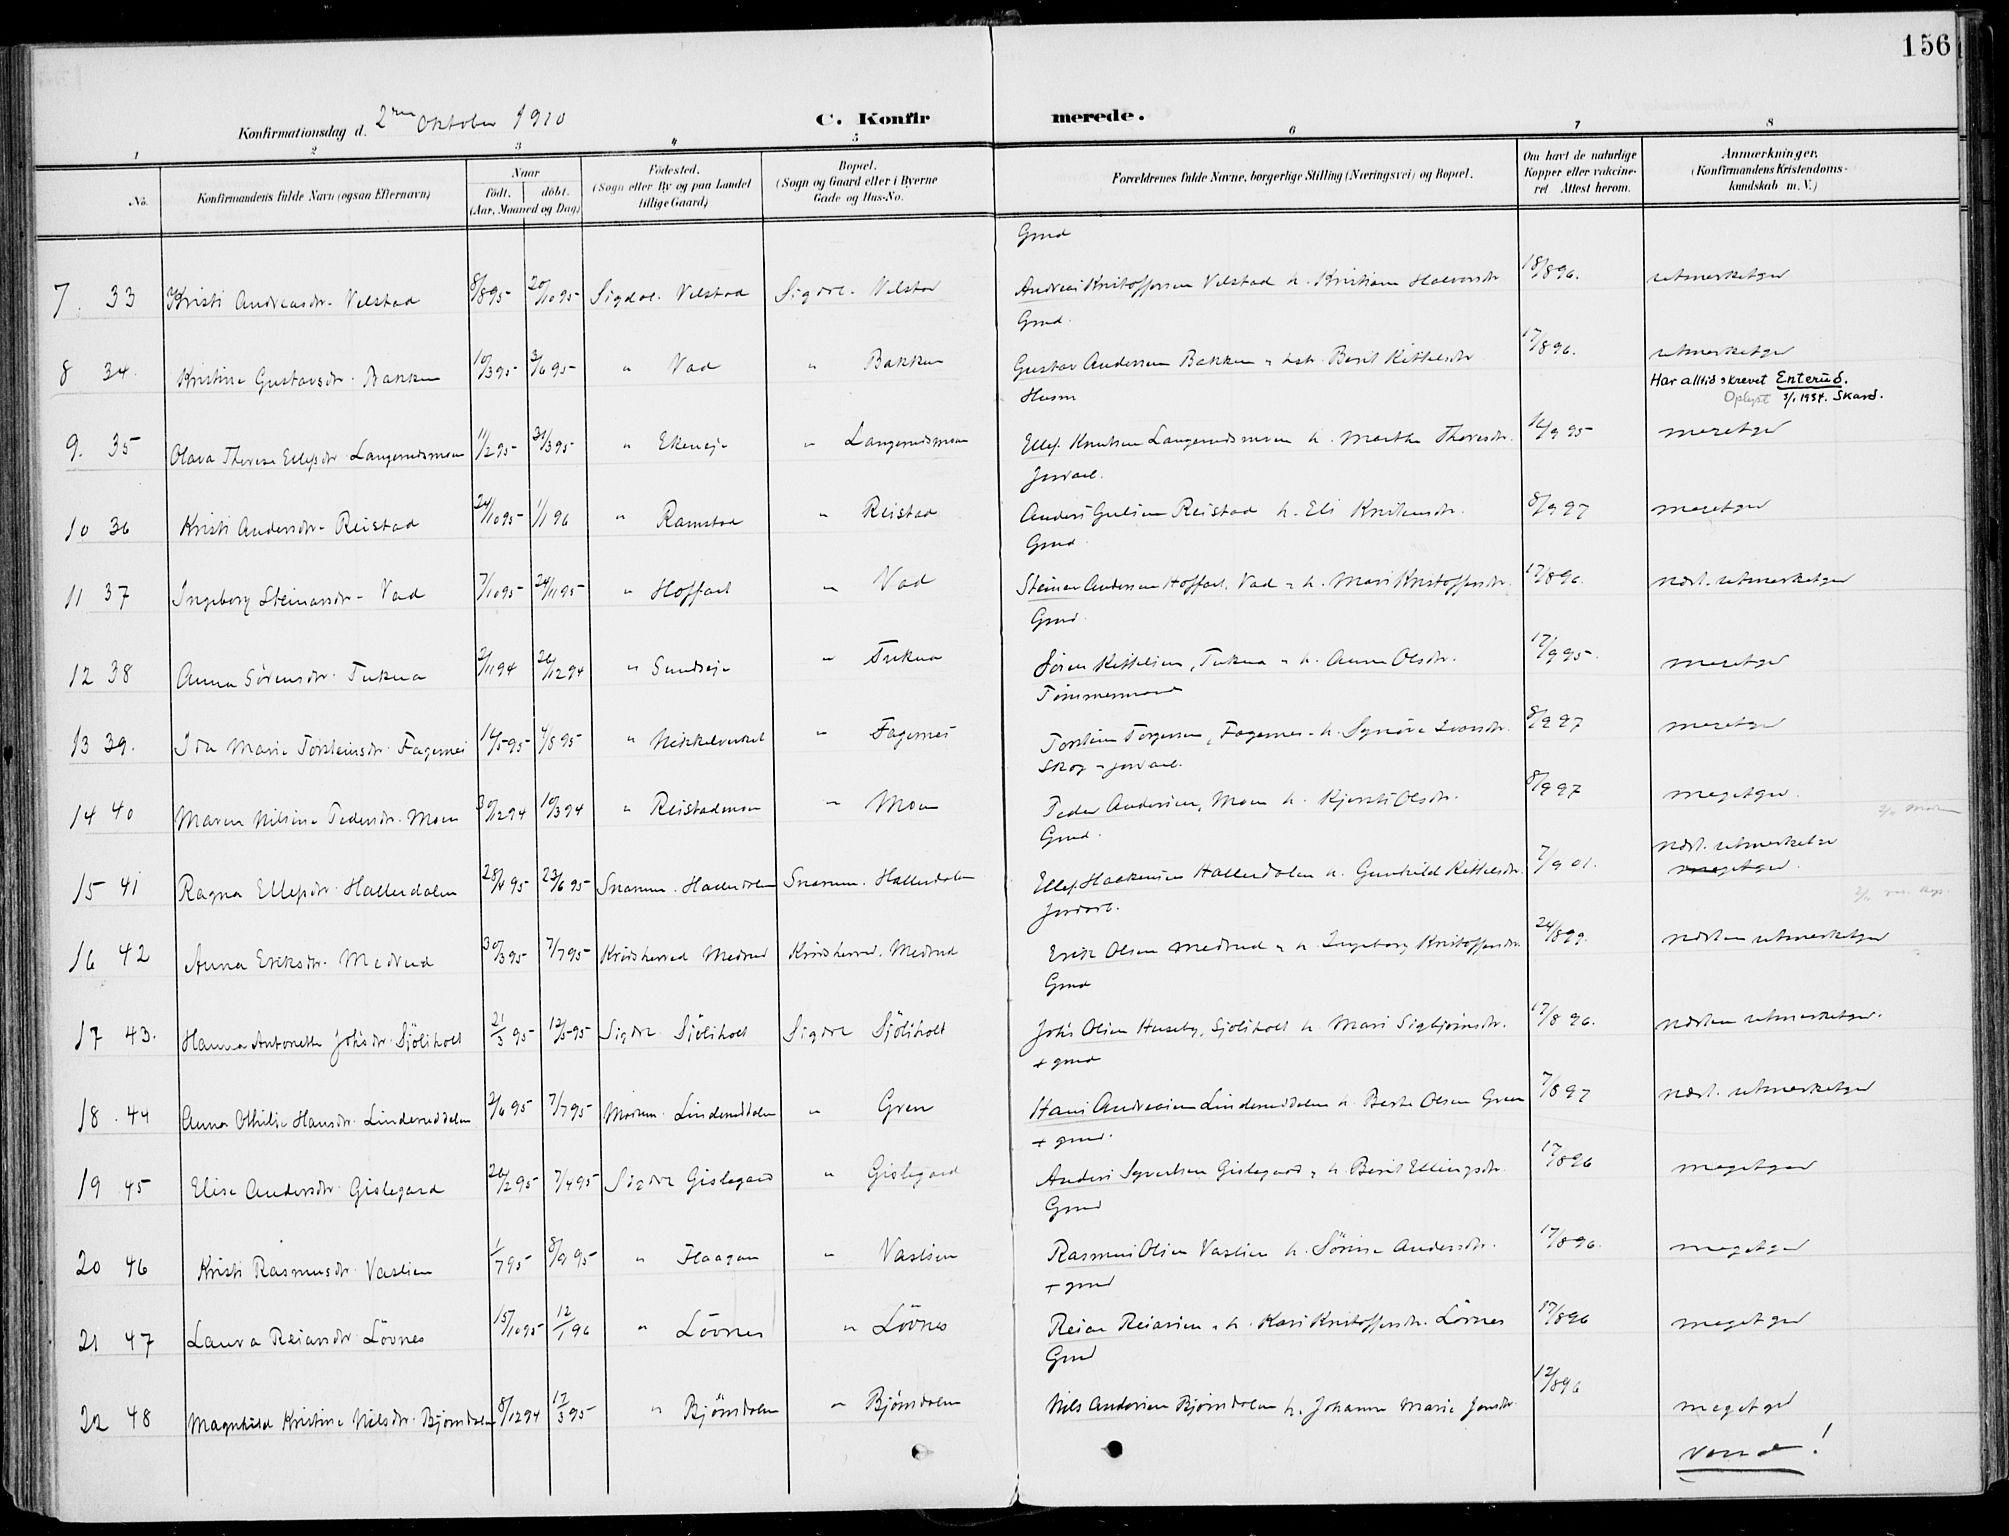 156
Konfirmationsdag d. 2den Oktober 1910
C. Konfirmerede.
1 2 3 4 5 6 7 8
No.
Konfirmandens fulde Navn (ogsaa Efternavn)
Naar
födt. döbt.
(Aar, Maaned og Dag)
Födested.
(Sogn eller By og paa Landet
tillige Gaard)
Bopæl.
(Sogn og Gaard eller i Byerne
Gade og Hus-No.
Forældrenes fulde Navne, borgerlige Stilling (Næringsvei) og Bopæl.
Om havt de naturlige
Kopper eller vakcine-
ret Attest herom.
Anmærkninger.
(Konfirmandens Kristendoms-
kundskab m. V.)
Gmd
7. 33 Kristi Andreasdr. Velstad 8/8 95 20/10 95 Sigdal. Velstad Sigdal. Velstad Andreas Kristoffersen Velstad h. Kristiane Halvorsdr. 18/8 96. utmerketgod
Gmd.
8 34. Kristine Gustavsdr. Bakken 10/3 95 3/6 95 " Vad " Bakken Gustav Andersen Bakken - hst. Berit Kittelsdr. 17/8 96. utmerketgod
Har alltid skrevet Enterud.
Oplyst 3/1 1934. Skard.
Husm
9. 35 Olava Therese Ellefsdr. Langerudsmoen 11/2 95 31/3 95 " Ekereje " Langerudsmoen Ellef Knutsen Langerudsmoen h. Marthe Thoresdr. 16/9 95 megetgod
Jordarb.
10 36 Kristi Andersdr. Reistad 24/10 95 1/1 96 " Ramstad " Reistad Anders Gulsen Reistad h. Eli Kristensdr. 8/9 97 megetgod
Gmd.
11 37 Ingeborg Steinarsdr. Vad 7/10 95 24/11 95 " Hoffart " Vad Steinar Andersen Hoffart. Vad - h. Mari Kristoffersdr. 17/8 96. næst. utmerketgod
Gmd.
12 38 Anna Sörensdr. Tukua 2/11 94 26/12 94 " Sundseje " Tukua Sören Kittelsen, Tukua - h. Anne Olsdr. 17/9 95. megetgod
Tömmermand
13 39. Ida Marie Torsteinsdr. Fagernes 14/5 95 4/8 95 " Nickelverket " Fagernes Torstein Torgersen, Fagernes - h. Synöve Ivarsdr. 8/9 97 megetgod
Skog - jordarb.
14 40 Maren Nilsine Pedersdr. Moen 30/12 94 10/3 94 " Reistadmoen " Moen Peder Andersen, Moen h. Kjersti Olsdr. 8/9 97 megetgod.
Gmd.
15 41 Ragna Ellefsdr. Hallerdalen 28/4 95 23/6 95 Snarum. Hallerdalen Snarum. Hallerdalen Ellef Haakensen Hallerdalen h. Gunhild Kittelsdr. 7/9 01. næst. utmerketgod
megetgod.
Jordarb.
16 42 Anna Eriksdr. Medrud 30/3 95 7/7 95 Krödsherred Medrud Krödsherred. Medrud Erik Olsen Medrud - h. Ingeborg Kristoffersdr. 24/8 99. næsten utmerketgod
Gmd
17 43. Hanna Antonette Johsdr. Sjöliholt 21/3 95 12/5 95 Sigdal Sjöliholt Sigdal Sjöliholt Johs Olsen Huseby, Sjöliholt h. Mari Sigbjörnsdr. 17/8 96. næsten utmerketgod.
+ gmd
18. 44 Anna Othilie Hansdr. Lindereddalen 2/6 95 7/7 95 Modum. Lindereddalen " Gren Hans Andreasen Lindereddalen h. Berte Olsen Gren 7/8 97 næst. utmerketgod
+ gmd.
19 45 Elise Andersdr. Gislegaard 26/2 95 7/4 95 Sigdal Gislegaard " Gislegaard Anders Syvertsen Gislegaard - h. Berit Ellingsdr. 17/8 96 megetgod
Gmd
20 46 Kristi Rasmusdr. Vaslien 1/7 95 8/9 95 " Haagan " Vaslien Rasmus Olsen Vaslien h. Sörine Andersdr. 17/8 96. megetgod
+ gmd
21 47 Laura Reiarsdr. Lövnes 15/10 95 12/1 96 " Lövnes " Lövnes Reiar Reiarsen - h. Kari Kristoffersdr. Lövnes 17/8 96 megetgod
Gmd
22 48 Magnhild Kristine Nilsdr. Björndalen 8/12 94 17/3 95 " Björndalen " Björndalen Nils Andersen Björndalen h. Johanne Marie Jensdr. 12/8 96 megetgod
vend!